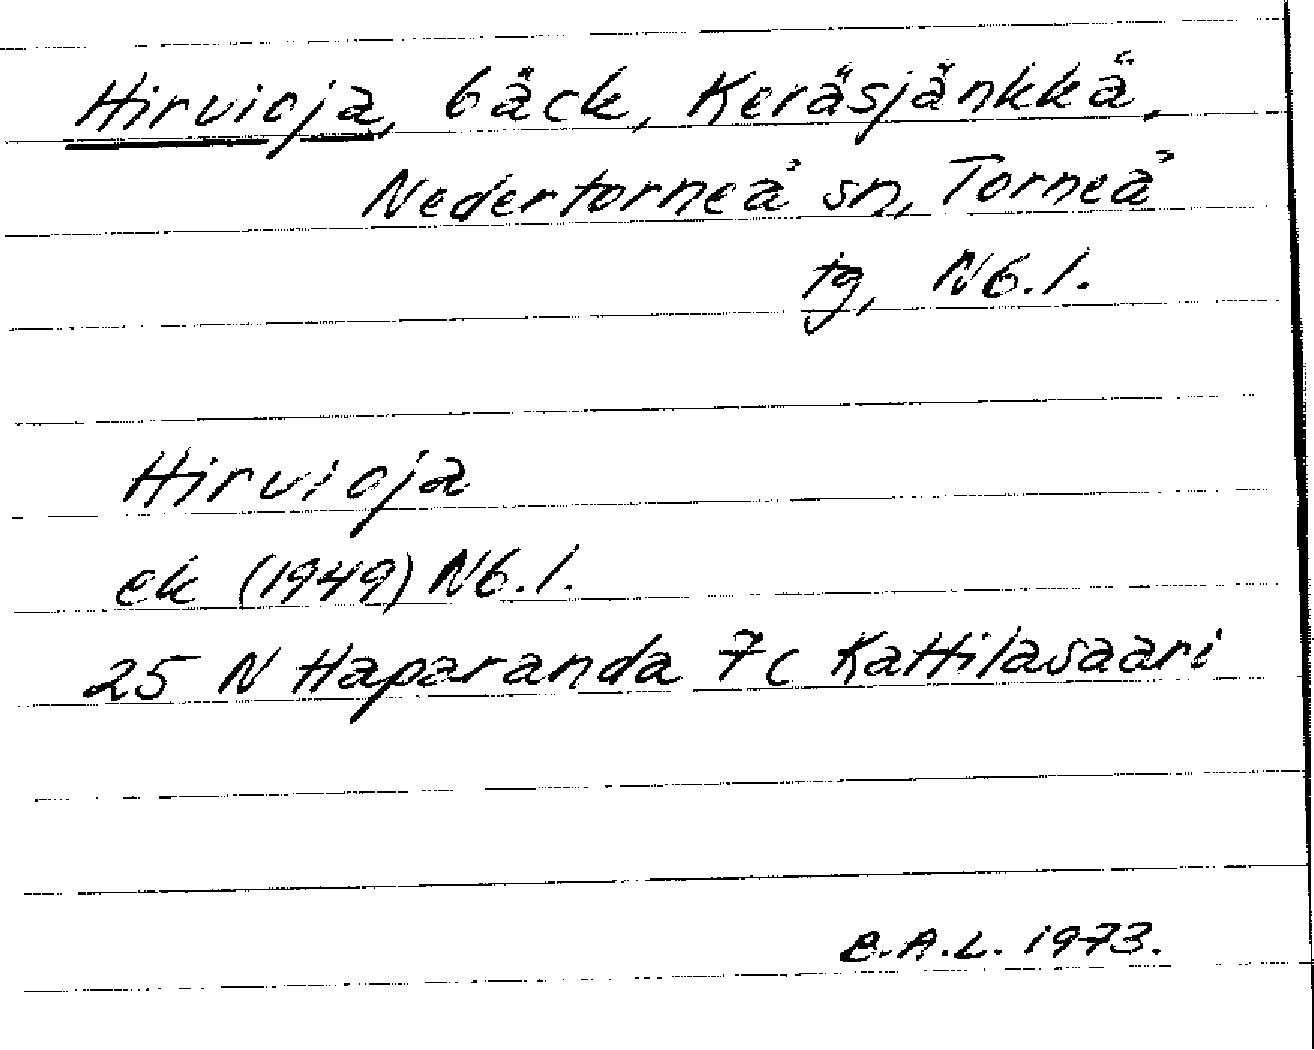 Hirvioja, bäck, Keräsjänkkä,
Nedertorneå sn, Torneå
tg, Nb.l.
Hirvioja
ek (1949) Nb.l.
25 N Haparanda 7c Kattilasaari
B.A.L. 1973.